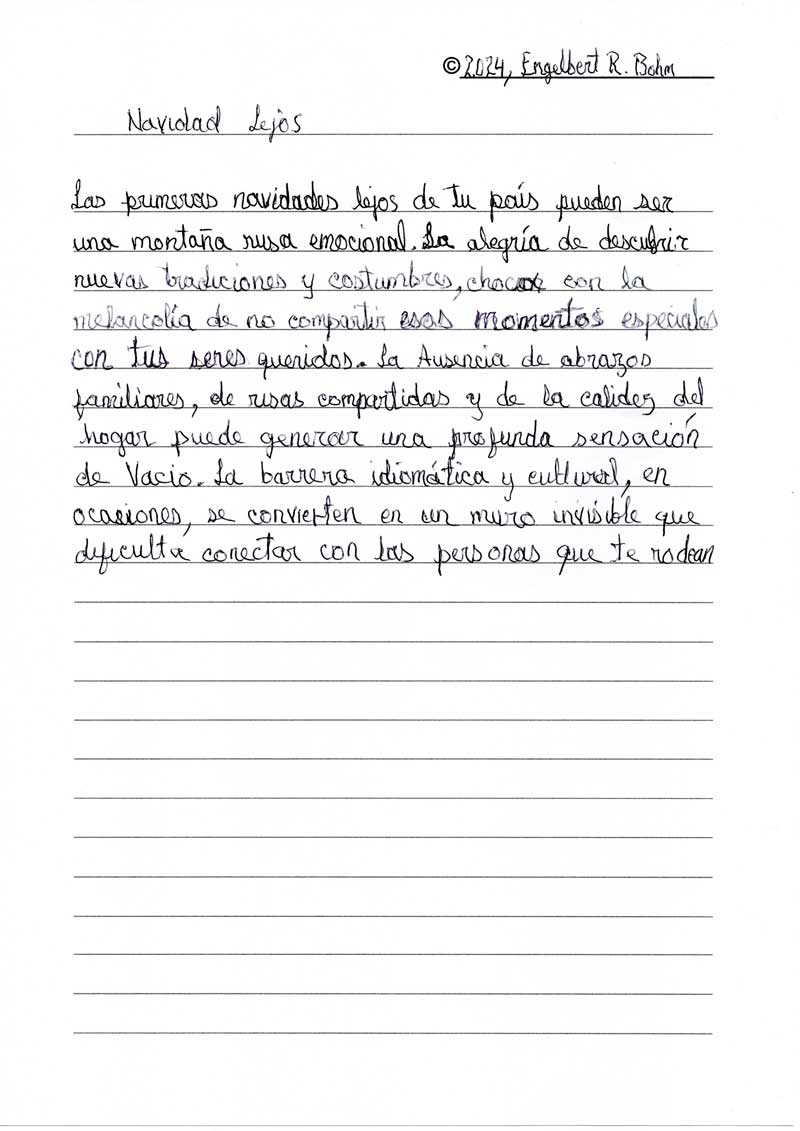 ©2024, Engelbert R. Bohm
Navidad Lejos
Las primeras navidades lejos de tu país pueden ser
una montaña rusa emocional. La alegría de descubrir
nuevas tradiciones y costumbres, choca con la
melancolía de no compartir esos momentos especiales
con tus seres queridos. La Ausencia de abrazos
familiares, de risas compartidas y de la calidez del
hogar puede generar una profunda sensación
de Vacio. La barrera idiomática y cultural, en
ocasiones, se convierten en un muro invisible que
dificulta conectar con las personas que te rodean